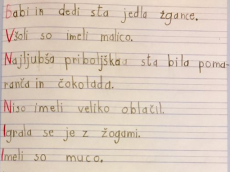 Babi in dedi sta jedla žgance.
Všoli so imeli malico.
Najljubša priboljška sta bila poma-
ranča in čokolada.
Niso imeli veliko oblačil.
Igrala se je z žogami.
Imeli so muco.